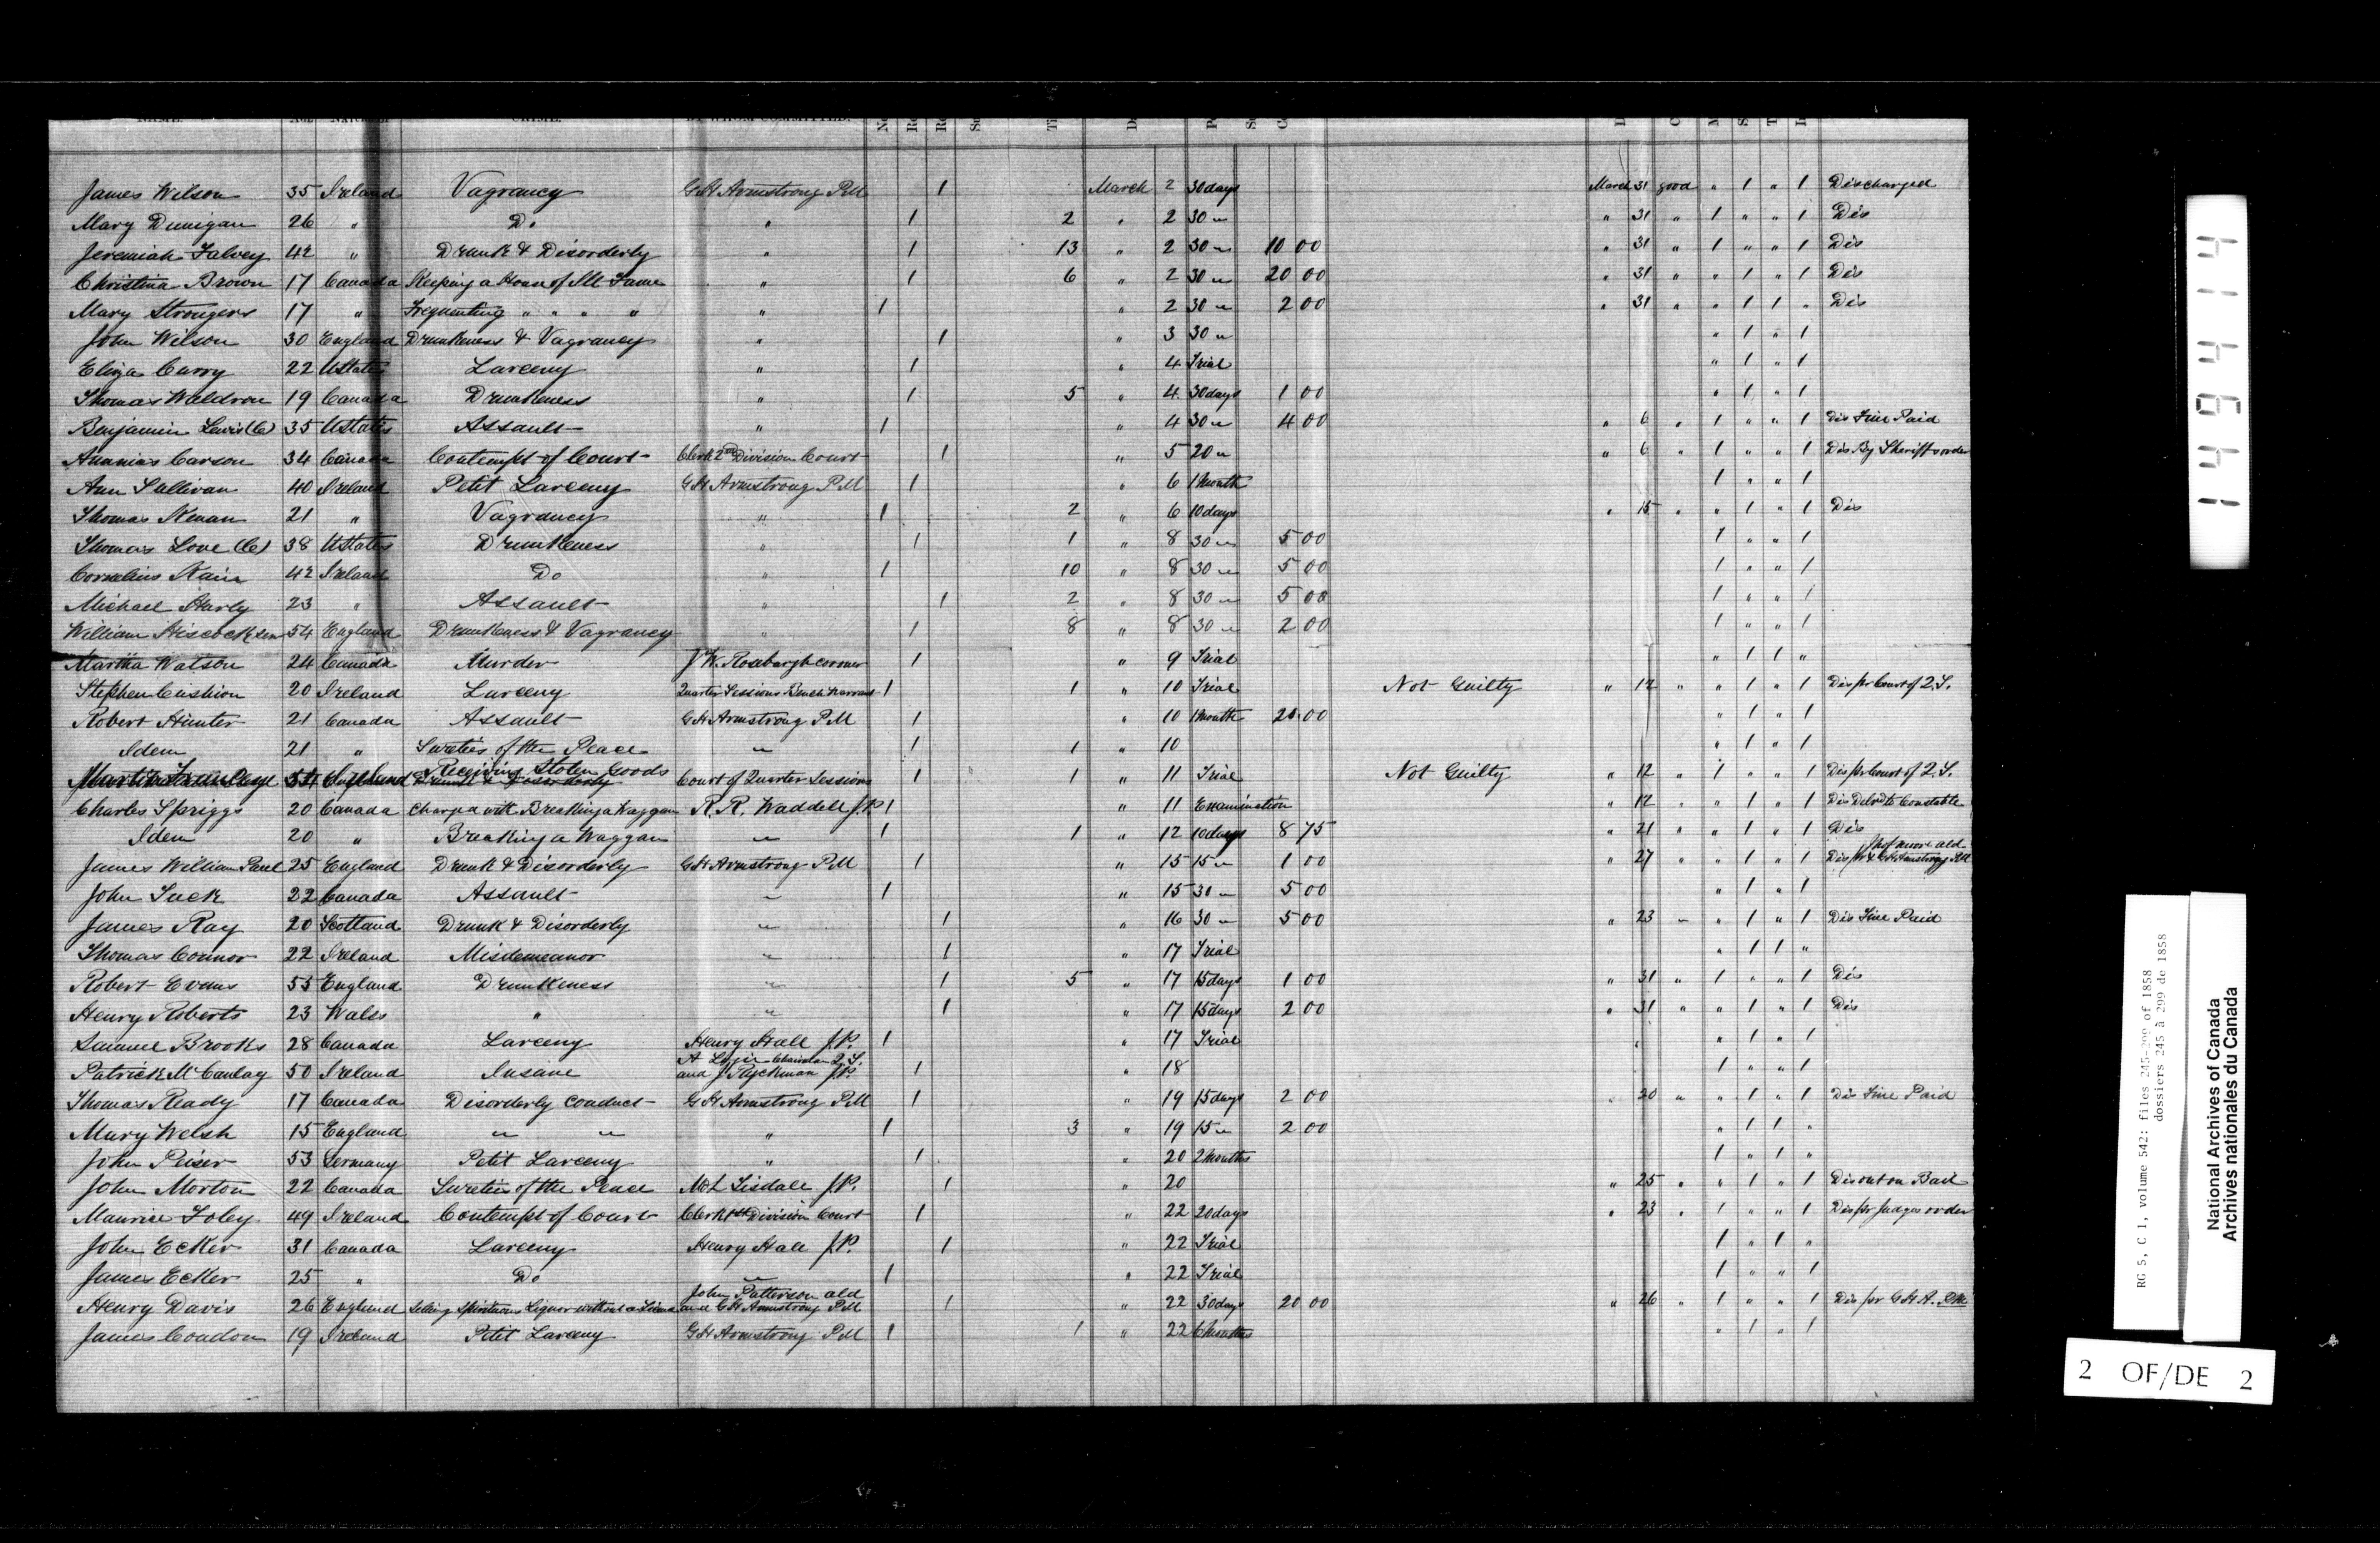 NAME. AGE CRIME. BY WHOM COMMITTED.
James Wilson 35 Ireland Vagrancy G H Armstrong P.M 1 March 2 30 days March 31 good " 1 " 1 Discharged
Mary Dunigan 26 " Do " 1 2 " 2 30 " " 31 " 1 " " 1 Dis
Jeremiah Falvey 42 " Drunk & Disorderly " 1 13 " 2 30 " 10 00 " 31 " 1 " " 1 Dis
Christina Brown 17 Canada Keeping a House of Ill Fame " 1 6 " 2 30 " 20 00 " 31 " " 1 " 1 Dis
Mary Strongers 17 " Frequenting " " " " " 1 " 2 30 " 2 00 " 31 " " 1 1 " Dis
John Wilson 30 England Drunkeness & Vagrancy " 1 " 3 30 " " 1 " 1
Eliza Carry 22 UStates Larceny " 1 " 4 Trial " 1 " 1
Thomas Weldron 19 Canada Drunkeness " 1 5 " 4 30 days 1 00 " 1 " 1
Benjamin Lewis (C) 35 UStates Assault " 1 " 4 30 " 4 00 " 6 " 1 " " 1 Dis Fine Paid
Ananias Carson 34 Canada Contempt of Court Clerk 2nd Division Court 1 " 5 20 " " 6 " 1 " " 1 Dis By Sheriffs order
Ann Sullivan 40 Ireland Petit Larceny G H Armstrong P M 1 " 6 1 Month 1 " " 1
Thomas 21 " Vagrancy " 1 2 " 6 10 days " 15 " " 1 " 1 Dis
Thomas Love (C) 38 UStates Drunkeness " 1 1 " 8 30 " 5 00 1 " " 1
Cornelius 42 Ireland Do " 1 10 " 8 30 " 5 00 1 " " 1
Michael 23 " Assault " 1 2 " 8 30 " 5 00 1 " " 1
William Hiscock sen 54 England Drunkeness & Vagrancy " 1 8 " 8 30 " 2 00 1 " " 1
Martha Watson 24 Canada Murder J W. Rosebargh coroner 1 " 9 Trial " 1 1 "
Stephen Cushion 20 Ireland Larceny Quarter Sessions Bench Warrant 1 1 " 10 Trial Not Guilty " 12 " " 1 " 1 Dis pr Court of Q.S.
Robert Hunter 21 Canada Assault G H Armstrong P M 1 " 10 1 Month 20 00 " 1 " 1
Idem 21 " Sureties of the Peace " 1 1 " 10 " 1 " 1
Receiving Stolen Goods Court of Quarter Sessions 1 1 " 11 Trial Not Guilty " 12 " 1 " " 1 Dis pr Court of Q.S.
Charles Spriggs 20 Canada Charged with Breaking a Waggan R. R. Waddell J.P. 1 " 11 Examination " 12 " " 1 " 1 Dis Delvd to Constable
Idem 20 " Breaking a Waggan " 1 1 " 12 10 days 8 75 " 21 " " 1 " 1 Dis
James William Paul 25 England Drunk & Disorderly G H Armstrong P M 1 " 15 15 " 1 00 " 27 " " 1 " 1 Dis pr & G H Armstrong PM
John Tuck 22 Canada Assault " 1 " 15 30 " 5 00 " 1 " 1
James Ray 20 Scotland Drunk & Disorderly " 1 " 16 30 " 5 00 " 23 " " 1 " 1 Dis Fine Paid
Thomas Connor 22 Ireland Misdemeanor " 1 " 17 Trial " 1 1 "
Robert Evans 55 England Drunkeness " 1 5 " 17 15 days 1 00 " 31 " 1 " " 1 Dis
Henry Roberts 23 Wales " " 1 " 17 15 days 2 00 " 31 " " 1 " 1 Dis
Samuel Brooks 28 Canada Larceny Henry Hall J.P. 1 " 17 Trial " 1 " 1
Patrick McCaulay 50 Ireland Insane A Logie Chairman Q.S.
and J Ryckman J.P. 1 " 18 1 " " 1
Thomas Ready 17 Canada Disorderly Conduct G H Armstrong P M 1 " 19 15 days 2 00 " 20 " " 1 " 1 Dis Fine Paid
Mary Welsh 15 England " " " 1 3 " 19 15 " 2 00 " 1 1 "
John Peiser 53 Germany Petit Larceny " 1 " 20 2 Months 1 " 1 "
John Morton 22 Canada Sureties of the Peace Tisdale J.P. 1 " 20 " 25 " " 1 " 1 Dis out on Bail
Maurice Foley 49 Ireland Contempt of Court Clerk 1st Division Court 1 " 22 20 days " 23 " 1 " " 1 Dis pr Judges order
John Ecker 31 Canada Larceny Henry Hall J.P. 1 " 22 Trial 1 " 1 "
James Ecker 25 " Do " 1 " 22 Trial 1 " " 1
Henry Davis 26 England Selling Spirituous Liquor without a License John Patterson ald
and G H Armstrong P M 1 " 22 30 days 20 00 " 26 " 1 " " 1 Dis pr G H A. P.M
James Condon 19 Ireland Petit Larceny G H Armstrong P M 1 1 " 22 6 Months " 1 " 1
149414
RG 5, C 1, volume 542: files 245-299 of 1858
dossiers 245 à 299 de 1858
National Archives of Canada
Archives nationales du Canada
2 OF/DE 2